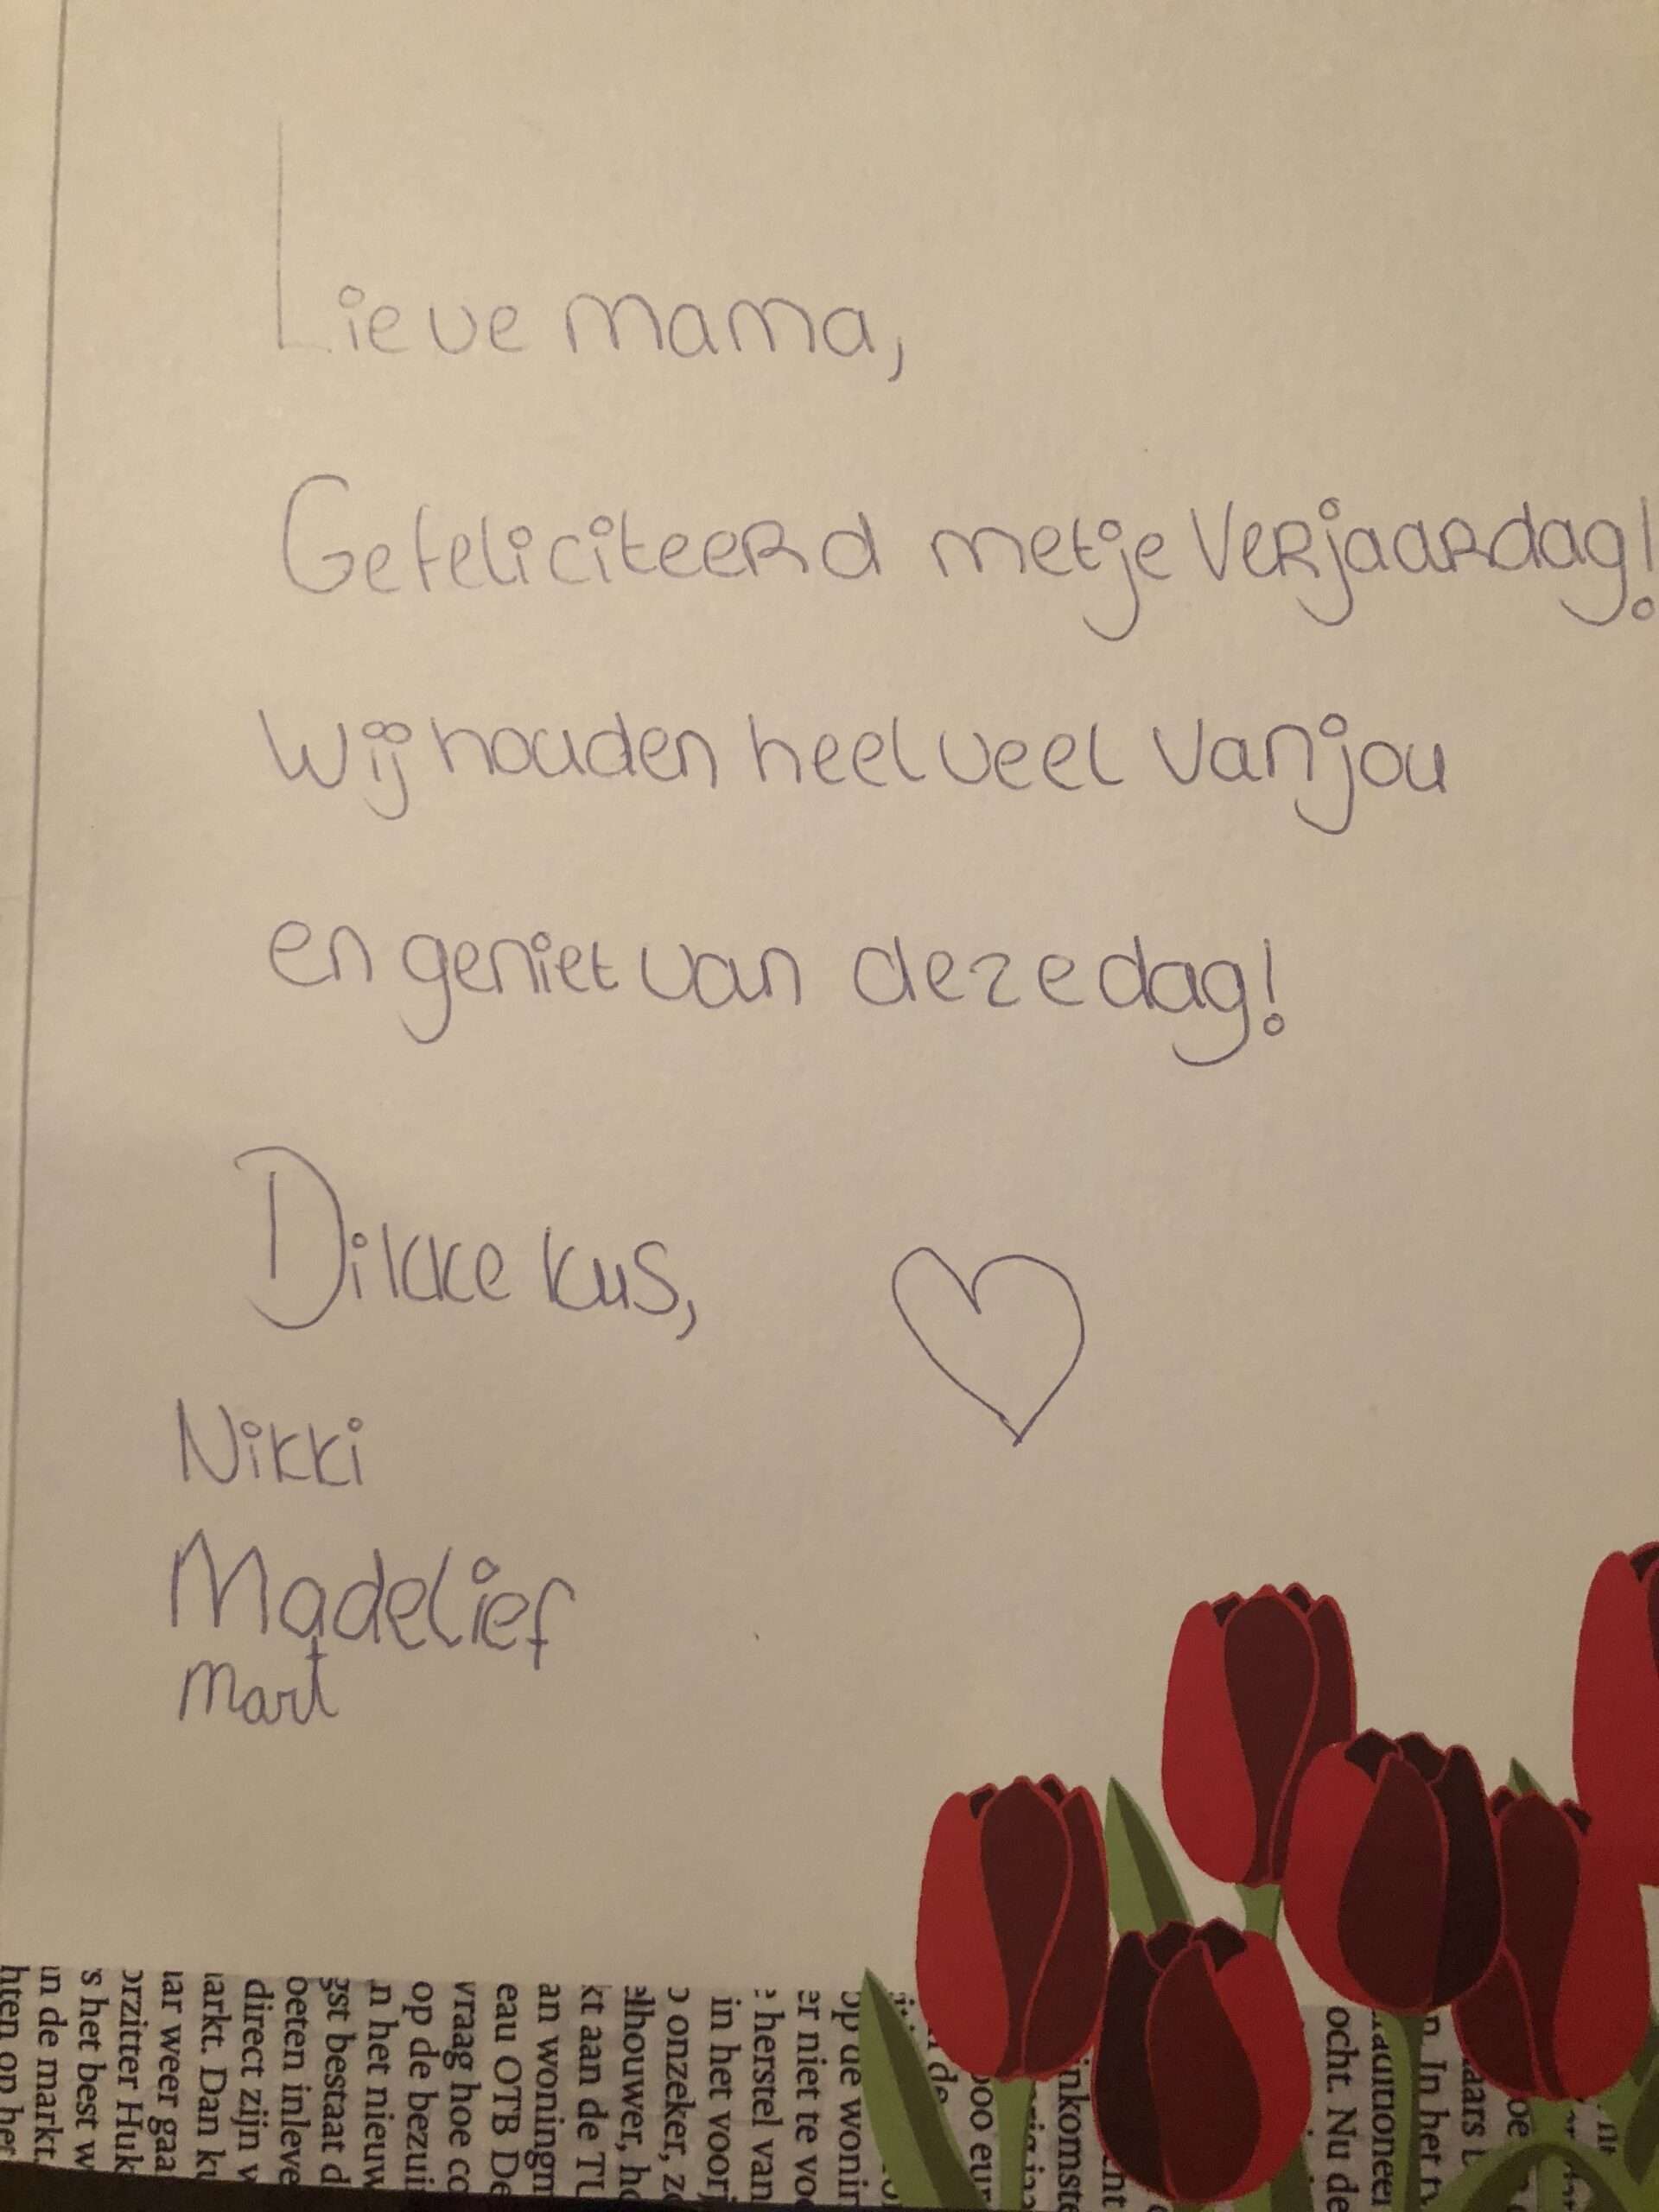 Lieve mama,
Gefeliciteerd met je verjaardag!
Wij houden heel veel van jou
en geniet van deze dag!
Dikke kus,
Nikki
Madelief
Mart
op de wonin
er niet te vo
herstel van
in het voor
onzeker, z
elhouwer, h
kt aan de TU
an woningm
eau OTB De
vraag hoe co
op de bezui
n het nieuw
gst bestaat d
oeten inleve
direct zijn v
arkt. Dan ku
aar weer gaa
orzitter Huk
s het best w
in de markt.
hten op het
ocht. Nu de
n. In het
inkomste
000 eur